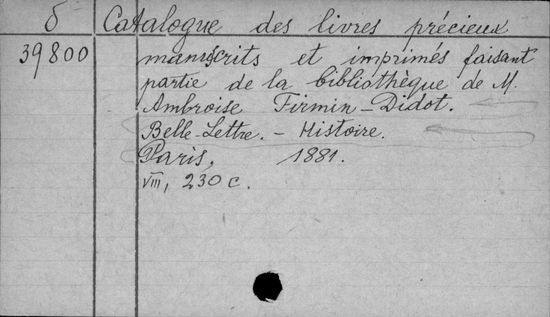 б Catalogue des livres précieux
39800 manuscrits et imprimés faisant
partie de la bibliothèque de M.
Ambroise Firmin-Didot.
Belle-Lettre. - Histoire.
Paris, 1881.
VIII, 230 c.